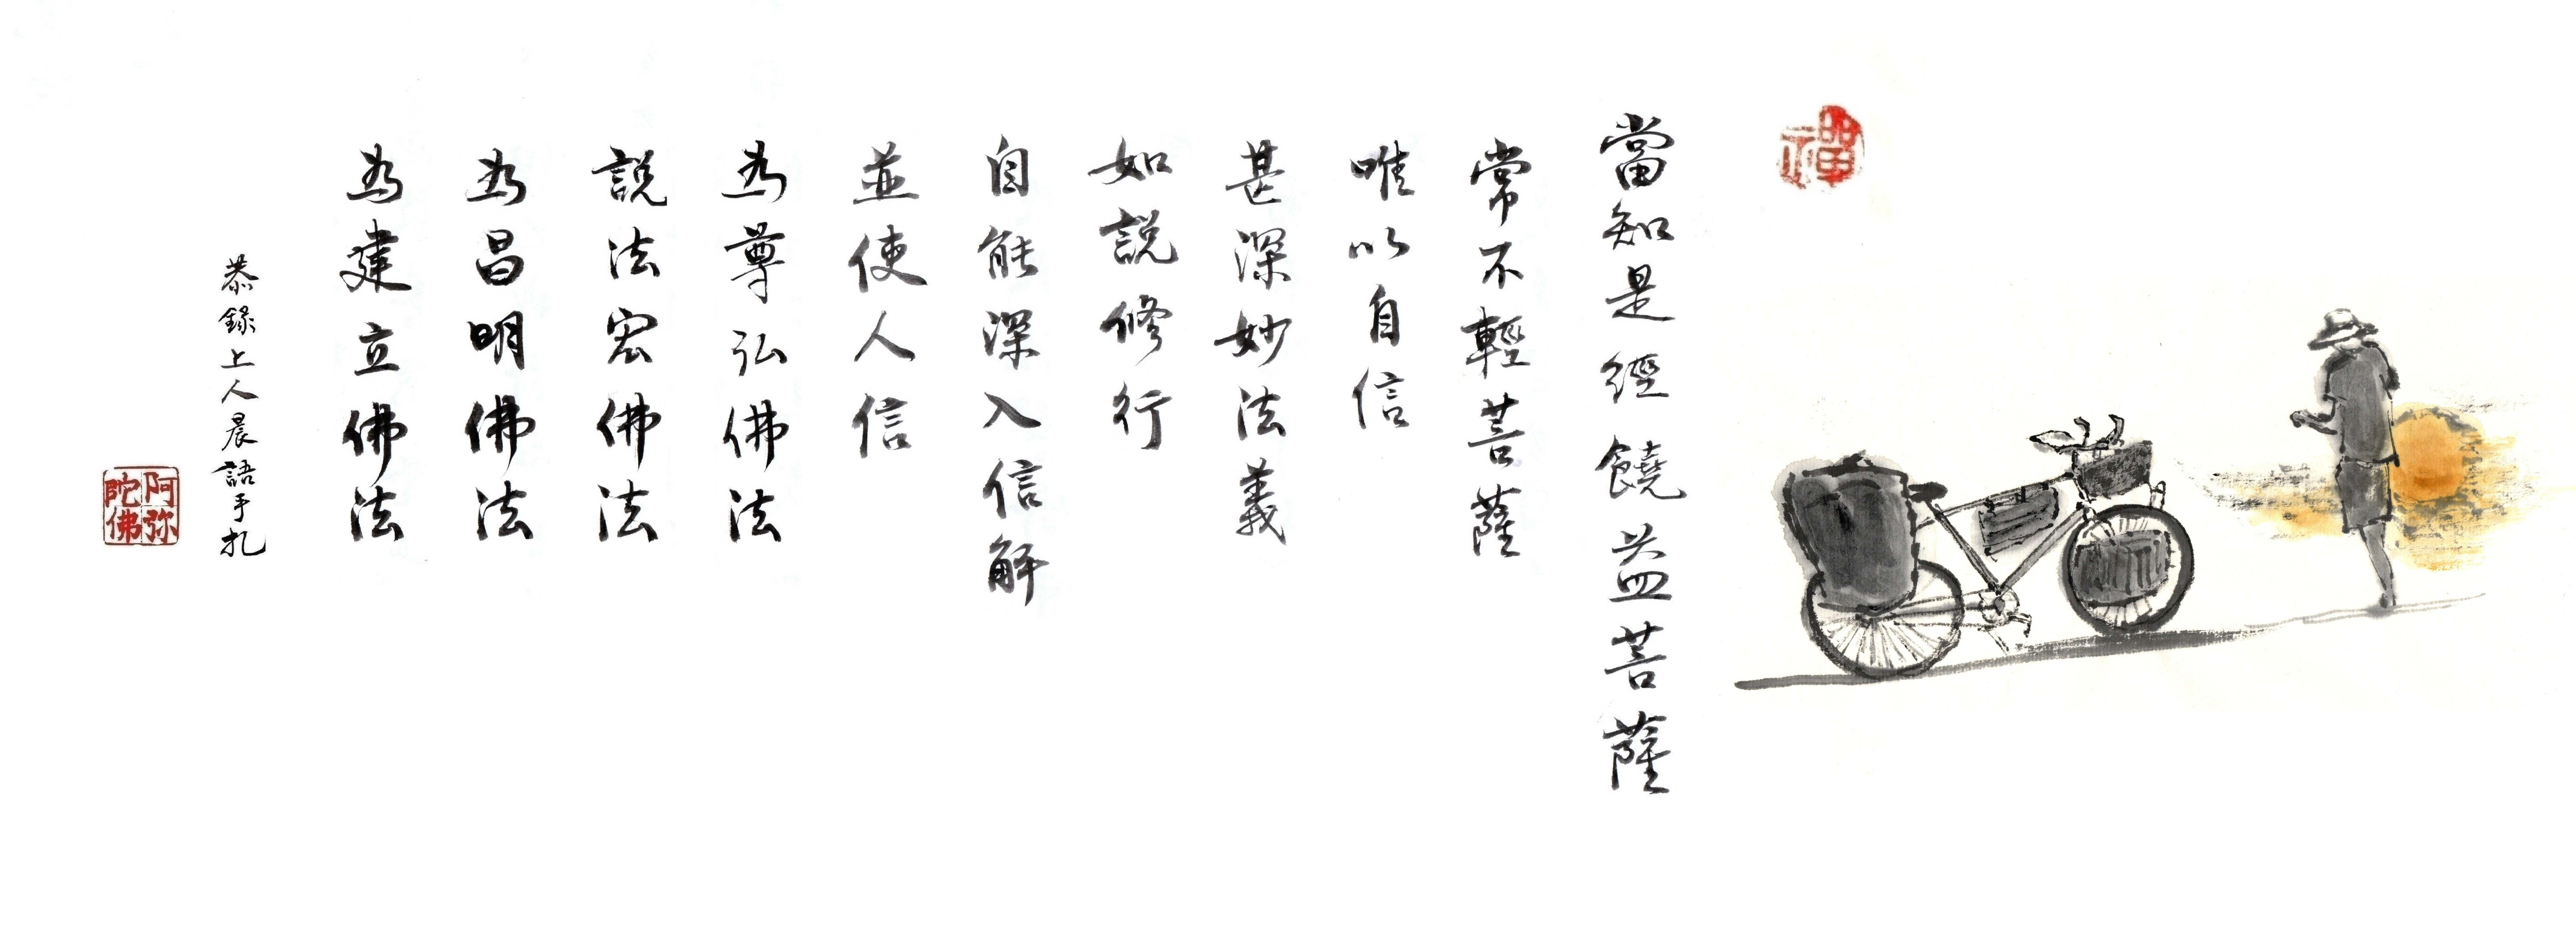 禪
當知是經饒益菩薩
常不輕菩薩
唯以自信
甚深妙法義
如說修行
自能深入信解
並使人信
為尊弘佛法
說法宏佛法
為昌明佛法
為建立佛法
恭錄上人晨語手扎
阿弥
陀佛